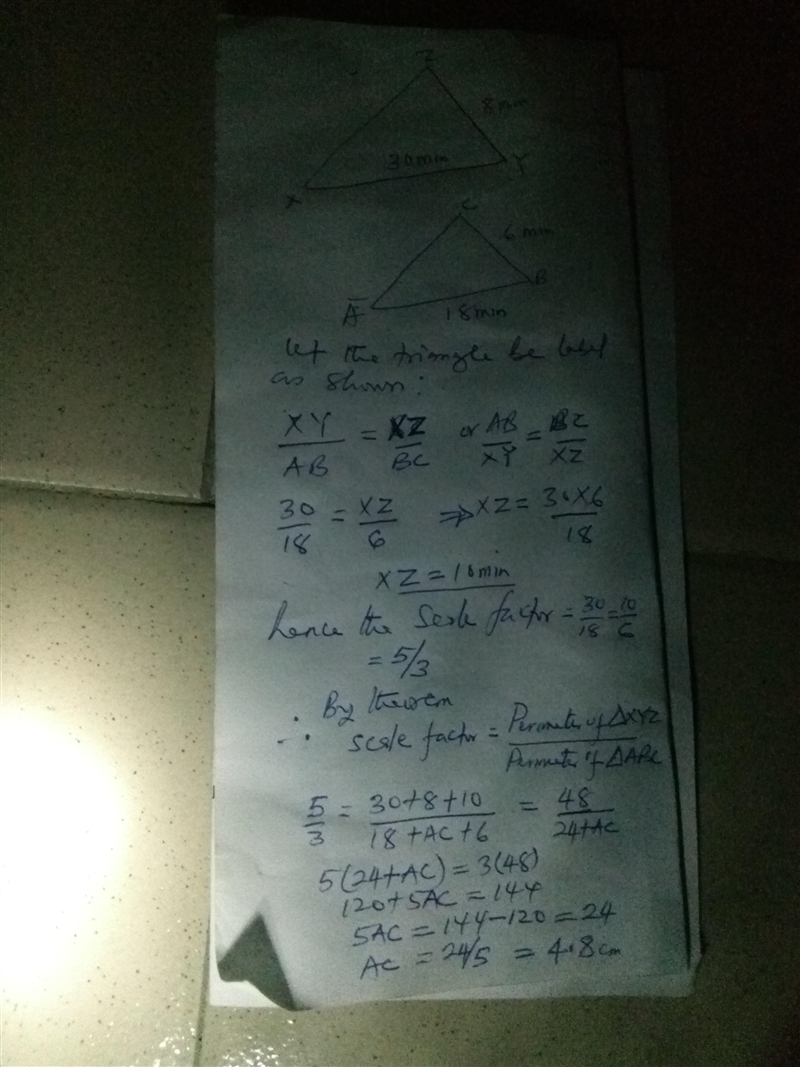 Z
8mm
30mm
Y
X
C
6mm
B
A
18mm
let the triangle be label
as shown:
XY/AB = XZ/BC or AB/XY = BC/XZ
30/18 = XZ/6 ⇒ XZ = 30X6/18
XZ = 10mm
hence the scale factor = 30/18 = 10/6
= 5/3
∴ By theorem
scale factor = Perimeter of △XYZ/Perimeter of △ABC
5/3 = 30+8+10/18+AC+6 = 48/24+AC
5(24+AC) = 3(48)
120+5AC = 144
5AC = 144-120 = 24
AC = 24/5 = 4.8cm